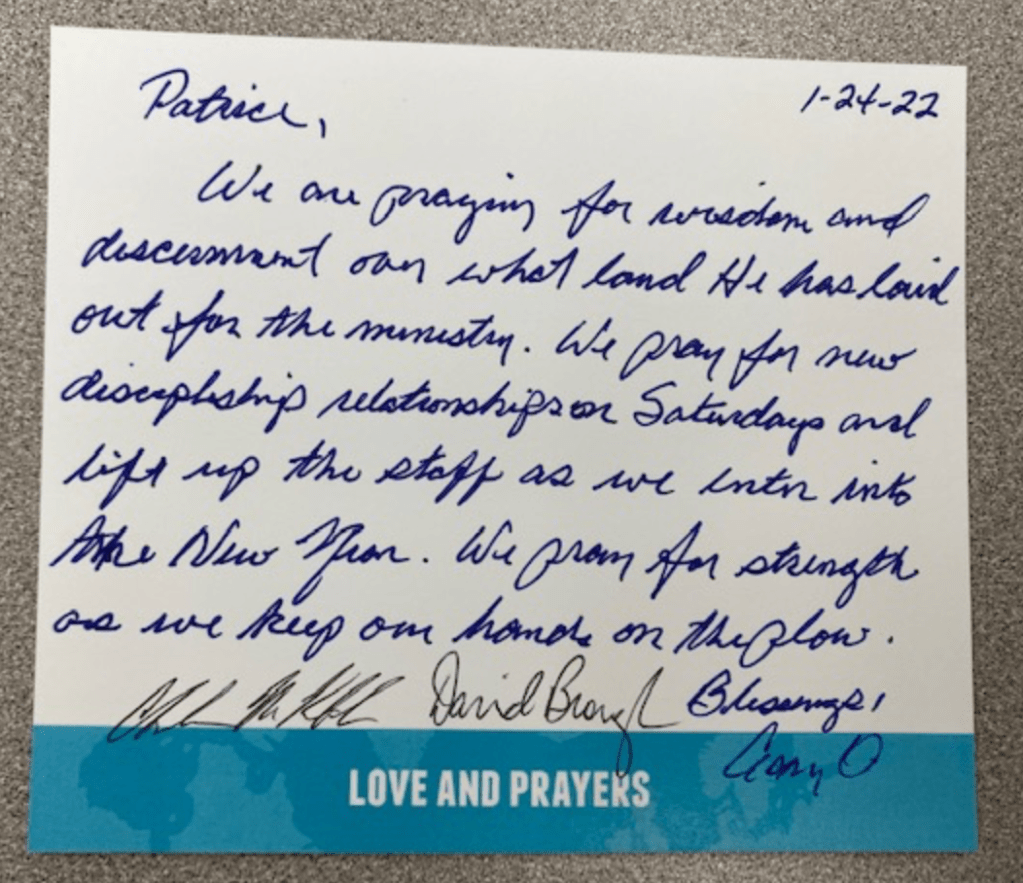 Patrice, 1-24-22
We are praying for wisdom and
discernment over what land He has laid
out for the ministry. We pray for new
discipleship relationships on Saturdays and
lift up the staff as we enter into
the New Year. We pray for strength
as we keep our hands on the plow.
David Brough Blessings,
LOVE AND PRAYERS